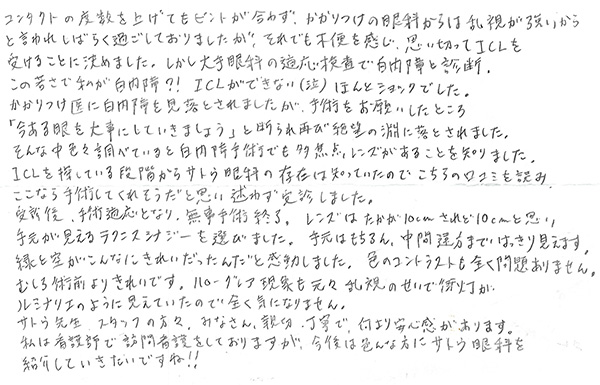 コンタクトの度数を上げてもピントが合わず、かかりつけの眼科からは乱視が強いから
と言われしばらく過ごしておりましたが、それでも不便を感じ、思い切ってICLを
受けることに決めました。しかし大手眼科の適応検査で白内障と診断。
この若さで私が白内障?! ICLができない(泣) ほんとショックでした。
かかりつけ医に白内障を見落とされましたが、手術をお願いしたところ
「今ある眼を大事にしていきましょう」と断られ再び絶望の淵に落とされました。
そんな中色々調べていると白内障手術でも多焦点レンズがあることを知りました。
ICLを探している段階からサトウ眼科の存在は知っていたので こちらの口コミを読み、
ここなら手術してくれそうだと思い 迷わず受診しました。
受診後、手術適応となり、無事手術終了。レンズはたかが10cmされど10cmと思い、
手元が見えるテクニスシナジーを選びました。手元はもちろん、中間遠方まではっきり見えます。
緑と空がこんなにきれいだったんだと感動しました。色のコントラストも全く問題ありません。
むしろ術前よりきれいです。ハローグレア現象も元々乱視のせいで街灯が
ルミナリエのように見えていたので全く気になりません。
サトウ先生、スタッフの方々、みなさん、親切、丁寧で、何より安心感があります。
私は看護師で訪問看護をしておりますが、今後は色んな方にサトウ眼科を
紹介していきたいですね!!